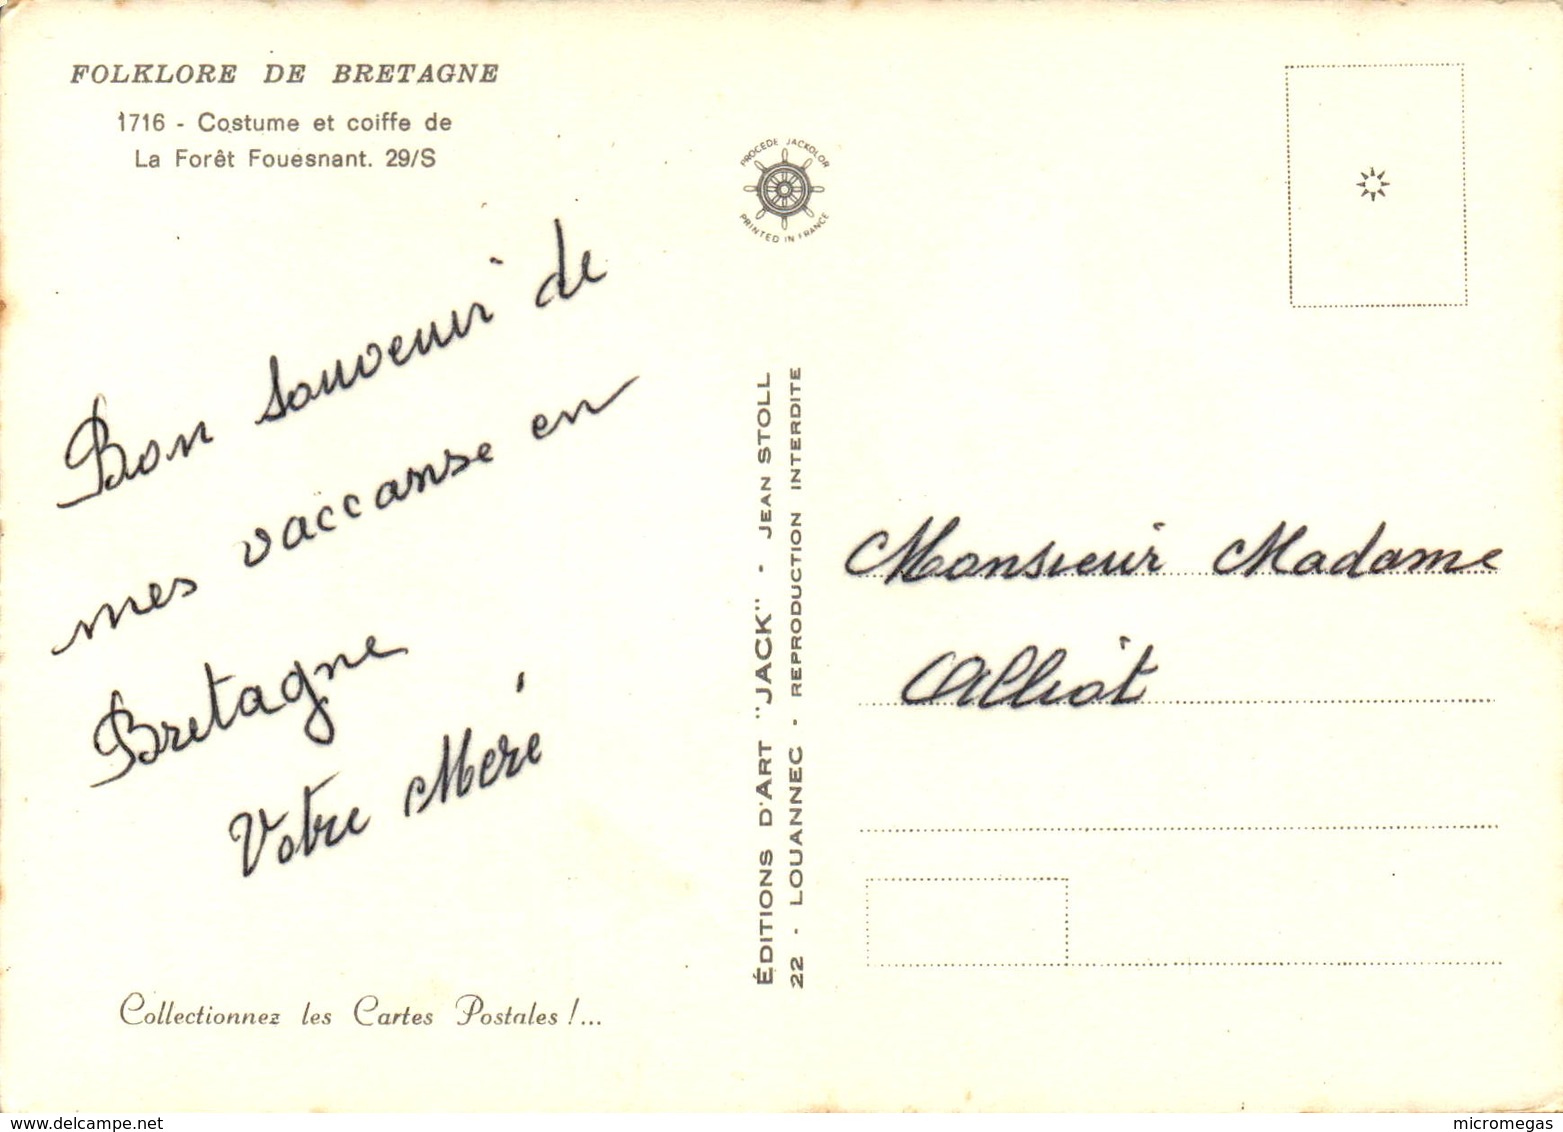 FOLKLORE DE BRETAGNE
1716 - Costume et coiffe de
La Forêt Fouesnant. 29/S
PROCEDE JACKOLOR
PRINTED IN FRANCE
Bon souvenir de
mes vaccanse en
Bretagne
Votre Meré
Collectionnez les Cartes Postales !...
ÉDITIONS D'ART "JACK" - JEAN STOLL
22 - LOUANNEC - REPRODUCTION INTERDITE
Monsieur Madame
Alliot
www.delcampe.net
micromegas